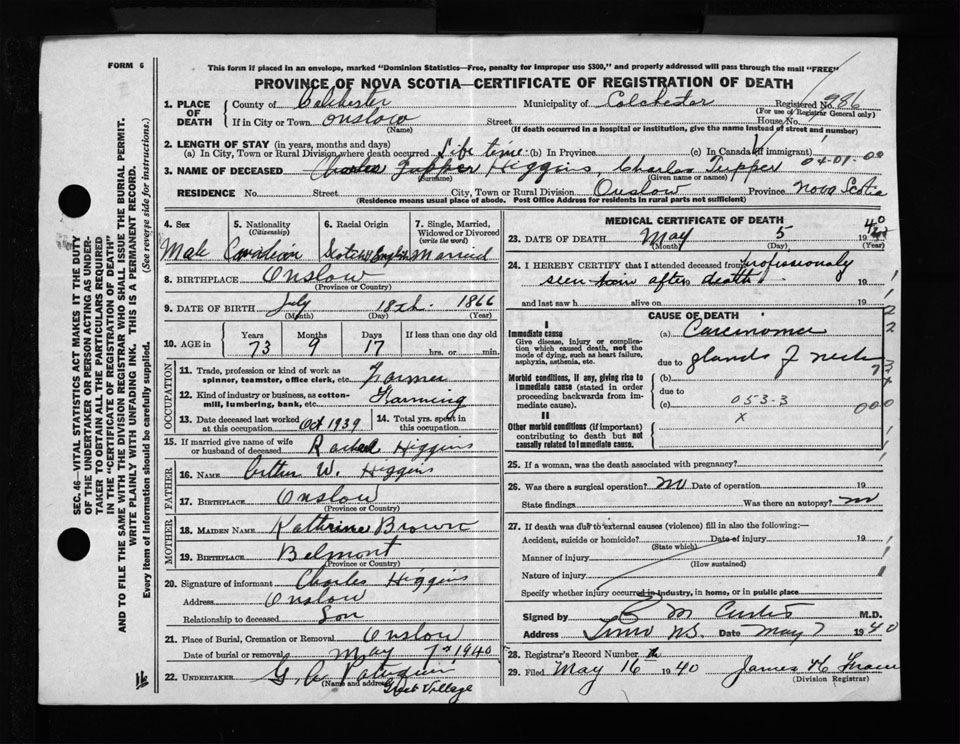 FORM 6
This form if placed in an envelope, marked "Dominion Statistics—Free, penalty for improper use $300," and properly addressed will pass through the mail "FREE"
PROVINCE OF NOVA SCOTIA—CERTIFICATE OF REGISTRATION OF DEATH
1. PLACE OF DEATH
County of Colchester Municipality of Colchester Registered No. 986
(For use of Registrar General only)
If in City or Town Onslow Street House No.
(Name) (If death occurred in a hospital or institution, give the name instead of street and number)
2. LENGTH OF STAY (in years, months and days)
(a) In City, Town or Rural Division where death occurred Life time (b) In Province (c) In Canada (if immigrant)
3. NAME OF DECEASED Charles Tupper Higgins, Charles Tupper 04-01-00
(Surname) (Given name or names)
RESIDENCE No. Street City, Town or Rural Division Onslow Province Nova Scotia
(Residence means usual place of abode. Post Office Address for residents in rural parts not sufficient)
4. Sex
Male
5. Nationality (Citizenship)
Canadian
6. Racial Origin
Scotch English
7. Single, Married, Widowed or Divorced (write the word)
Married
8. BIRTHPLACE Onslow
(Province or Country)
9. DATE OF BIRTH July 18th 1866
(Month) (Day) (Year)
10. AGE in
Years Months Days If less than one day old
73 9 17 hrs. or min.
OCCUPATION
11. Trade, profession or kind of work as spinner, teamster, office clerk, etc. Farmer
12. Kind of industry or business, as cotton-mill, lumbering, bank, etc. Farming
13. Date deceased last worked at this occupation Oct 1939
14. Total yrs. spent in this occupation
15. If married give name of wife or husband of deceased Rachael Higgins
FATHER
16. NAME W. Higgins
17. BIRTHPLACE Onslow
(Province or Country)
MOTHER
18. MAIDEN NAME Katherine Brown
19. BIRTHPLACE Belmont
(Province or Country)
20. Signature of informant Charles Higgins
Address Onslow
Relationship to deceased Son
21. Place of Burial, Cremation or Removal Onslow
Date of burial or removal May 7th 1940
22. UNDERTAKER G.
(Name and address) Great Village
MEDICAL CERTIFICATE OF DEATH
23. DATE OF DEATH May 5 1940
(Month) (Day) (Year)
24. I HEREBY CERTIFY that I attended deceased from Professionaly
seen him after death 19
and last saw h alive on 19
CAUSE OF DEATH
I
Immediate cause
Give disease, injury or complication which caused death, not the mode of dying, such as heart failure, asphyxia, asthenia, etc.
(a) Carcinoma
due to glands of neck
Morbid conditions, if any, giving rise to immediate cause (stated in order proceeding backwards from immediate cause).
(b)
due to
(c) 053-3
000
II
Other morbid conditions (if important) contributing to death but not causally related to immediate cause.
x
25. If a woman, was the death associated with pregnancy?
26. Was there a surgical operation? no Date of operation 19
State findings Was there an autopsy? no
27. If death was due to external causes (violence) fill in also the following:—
Accident, suicide or homicide? Date of injury 19
(State which)
Manner of injury
(How sustained)
Nature of injury
Specify whether injury occurred in industry, in home, or in public place
Signed by C M Curtis M.D.
Address Truro NS. Date May 7 1940
28. Registrar's Record Number
29. Filed May 16 1940 James H
(Division Registrar)
SEC. 46—VITAL STATISTICS ACT MAKES IT THE DUTY
OF THE UNDERTAKER OR PERSON ACTING AS UNDER-
TAKER TO OBTAIN ALL THE PARTICULARS REQUIRED
IN THE "CERTIFICATE OF REGISTRATION OF DEATH"
AND TO FILE THE SAME WITH THE DIVISION REGISTRAR WHO SHALL ISSUE THE BURIAL PERMIT.
WRITE PLAINLY WITH UNFADING INK. THIS IS A PERMANENT RECORD.
Every item of information should be carefully supplied. (See reverse side for instructions.)